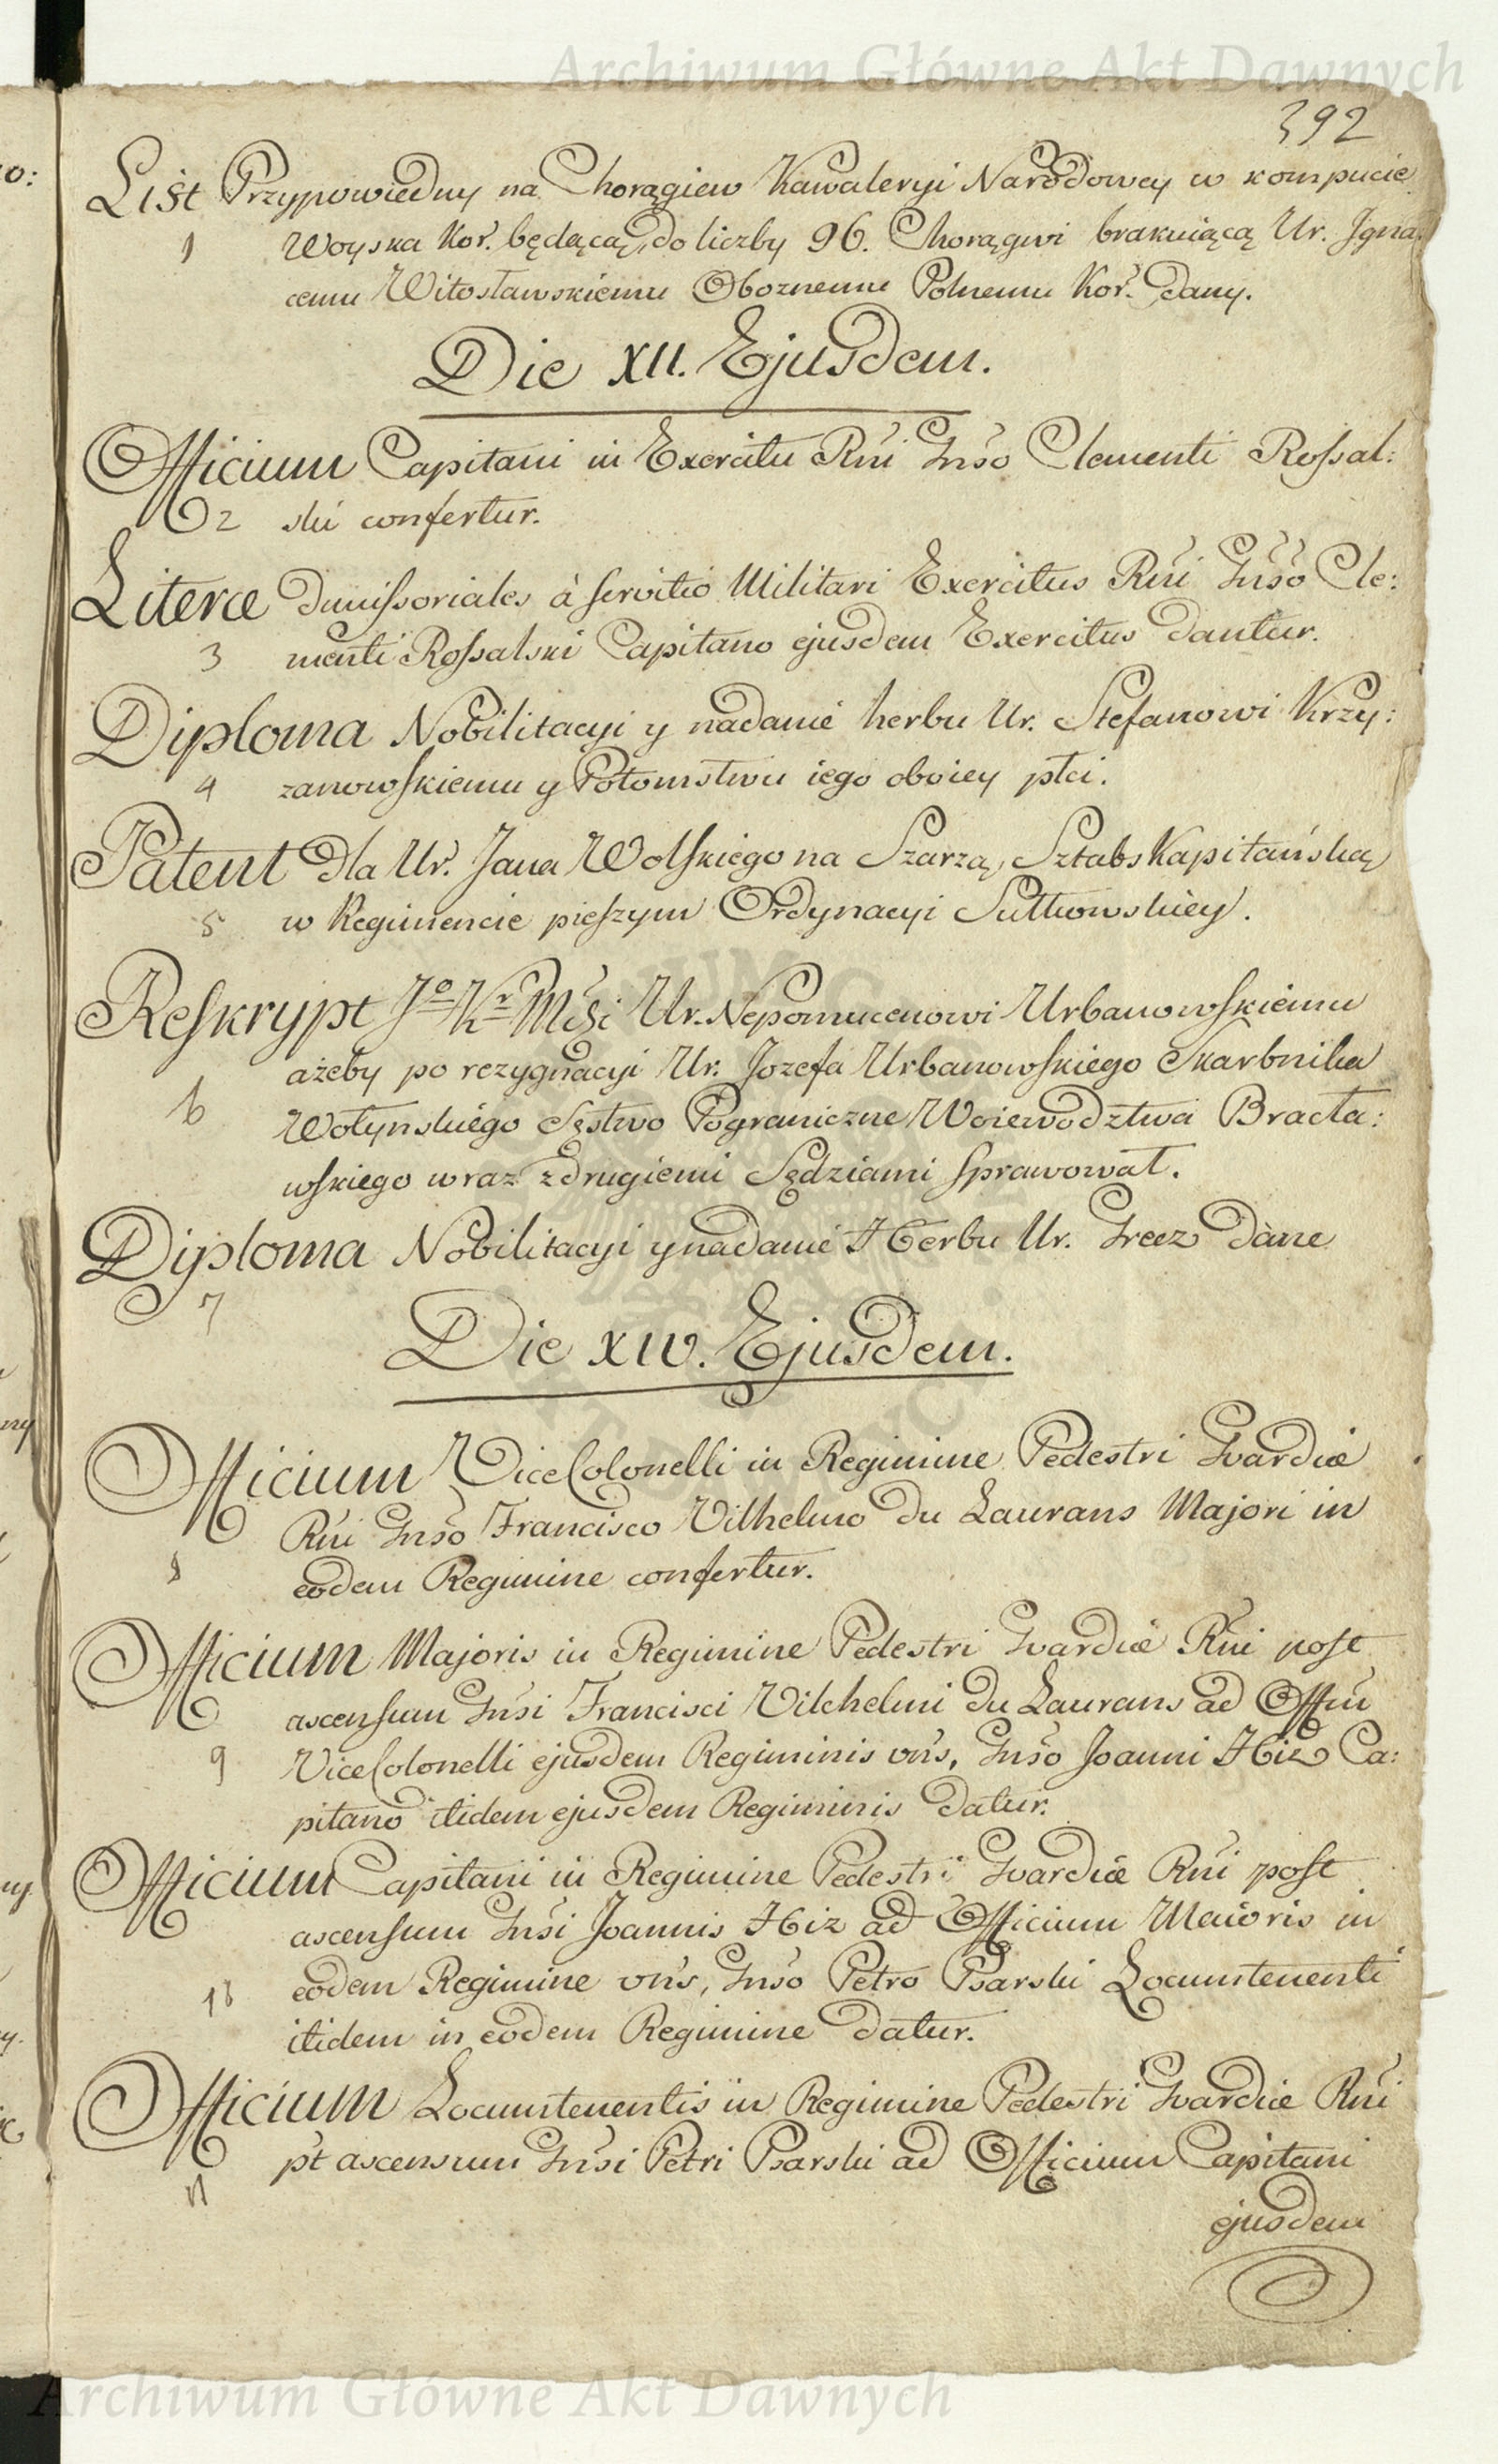 Archiwum Główne Akt Dawnych
392
List Przypowiedny na Chorągiew Kawaleryi Narodowey w kompucie
1 Woyska Kor. będącą, do liczby 96. Chorągwi brakuiącą Ur. Igna
cemu Witosławskiemu Oboznemu Polnemu Kor. dany.
Die XII. Ejusdem.
Officium Capitani in Exercitu Rni Gnso Clementi Rossal:
2 ski confertur.
Literæ dimissoriales à servitio Militari Exercitus Rni Gnso Cle:
3 menti Rossalski Capitano ejusdem Exercitus dantur.
Diploma Nobilitacyi y nadanie herbu Ur. Stefanowi Krzy:
4 zanowskiemu y Potomstwu iego oboiey płci.
Patent dla Ur. Jana Wolskiego na Szarzą Sztabs Kapitańską
5 w Regimencie pieszym Ordynacyi Sułkowskiey.
Reskrypt Jo Kr Mśi Ur. Nepomucenowi Urbanowskiemu
ażeby po rezygnacyi Ur. Jozefa Urbanowskiego Skarbnika
6 Wołynskiego Sęstwo Pograniczne Woiewodztwa Bracła:
wskiego wraz z drugiemi Sędziami sprawował.
Diploma Nobilitacyi y nadanie Herbu Ur. Greez dane
7
Die XIV. Ejusdem.
Officium ViceColonelli in Regimine Pedestri Gvardiæ
Rni Gnso Francisco Vilhelmo du Laurans Majori in
8 eodem Regimine confertur.
Officium Majoris in Regimine Pedestri Gvardiæ Rni post
ascensum Gnsi Francisci Vilchelmi du Laurans ad Offm
9 ViceColonelli ejusdem Regiminis vns, Gnso Joanni Hiz Ca:
pitano itidem ejusdem Regiminis datur.
Officium Capitani in Regimine Pedestri Gvardiæ Rni post
ascensum Gnsi Joannis Hiz ad Officium Maioris in
10 eodem Regimine vns, Gnso Petro Psarski Locumtenenti
itidem in eodem Regimine datur.
Officium Locumtenentis in Regimine Pedestri Gvardiæ Rni
11 pt ascensum Gnsi Petri Psarski ad Officium Capitani
ejusdem
Archiwum Główne Akt Dawnych